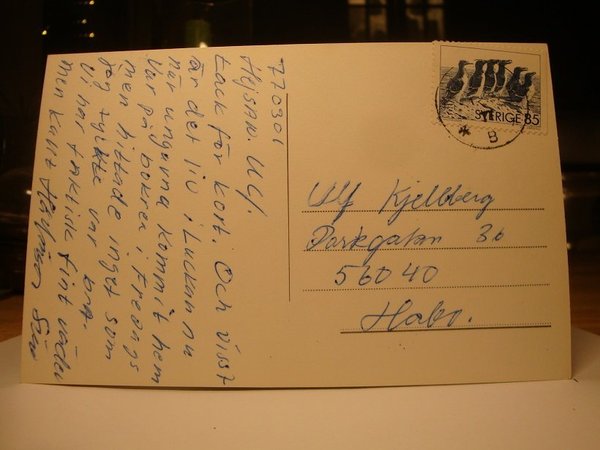 770301
Hejsan Ulf.
tack för kort. Och visst
är det liv i luckan nu
när ungarna kommit hem
Var på bokrea i Fredags
men hittade inget som
jag tyckte var bra.
Vi har faktiskt fint väder
men kallt
SVERIGE 85
B
Ulf Kjellberg
Parkgatan 3b
56040
Habo.